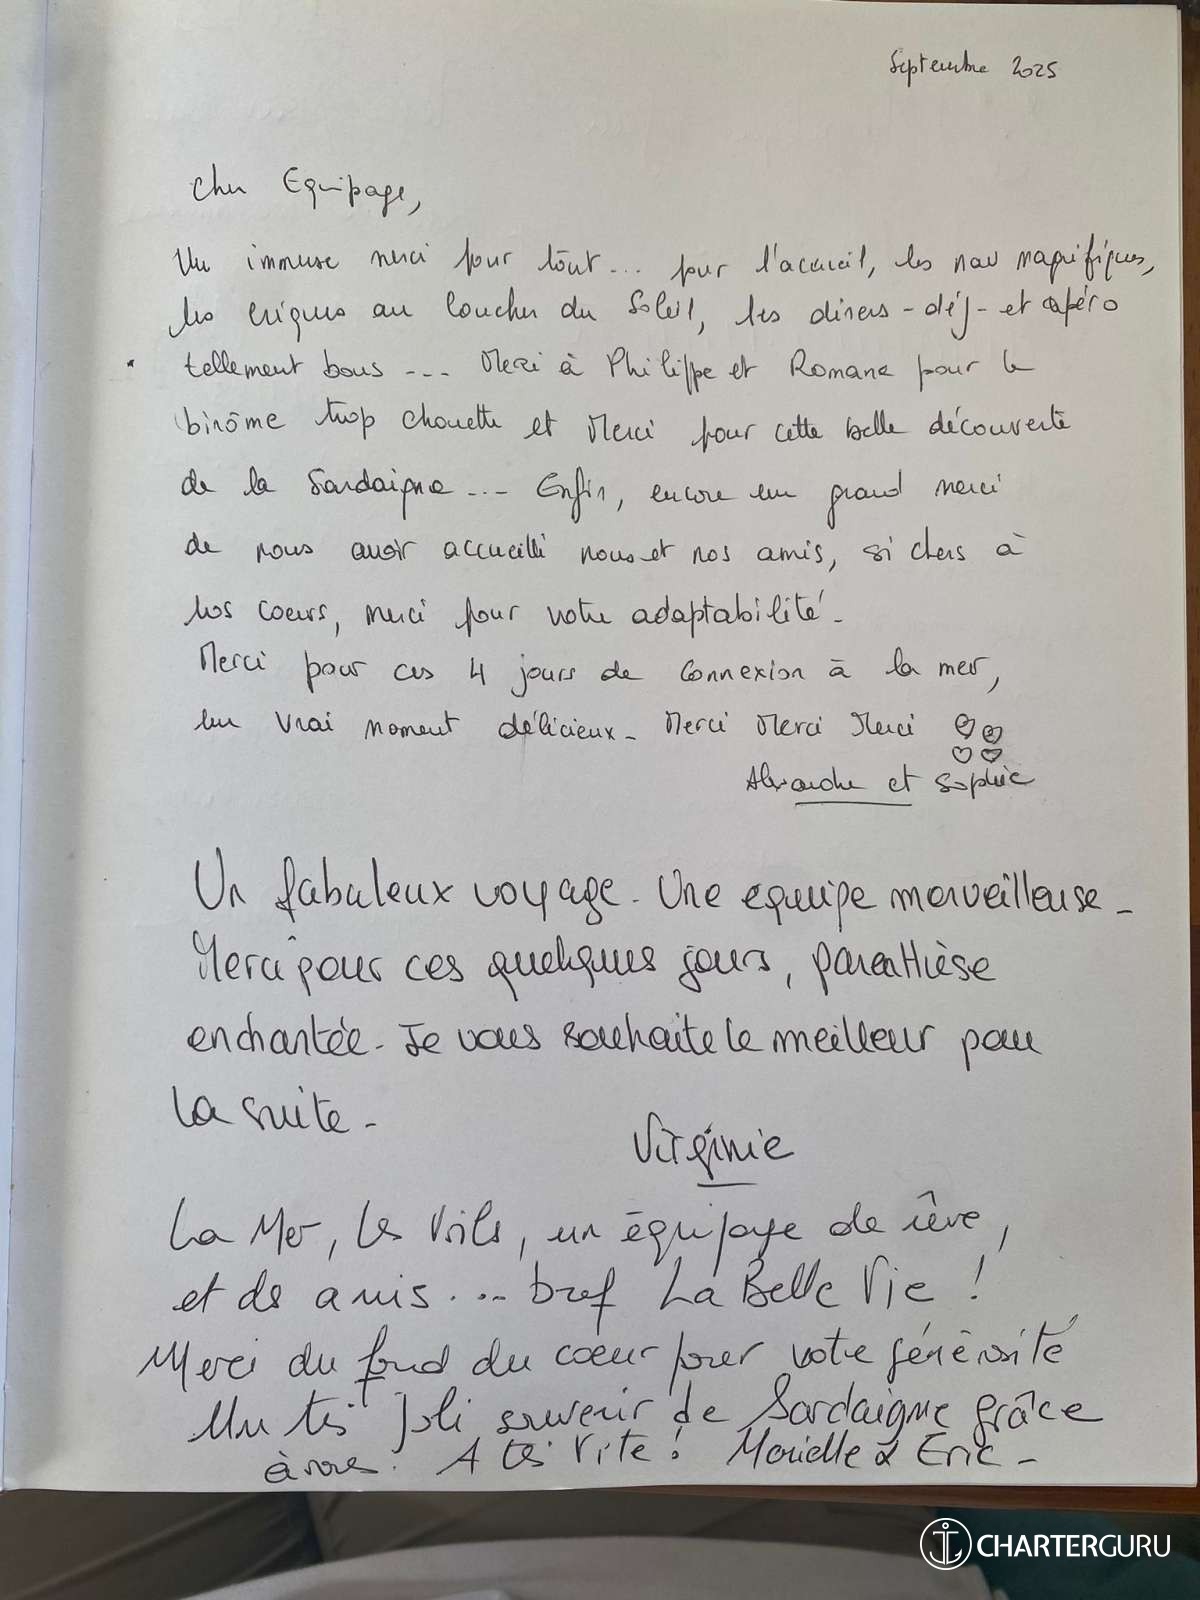 Septembre 2025
Cher Equipage,
Un immense merci pour tout... pour l'accueil, les nav magnifiques,
les criques au coucher du Soleil, les diners - déj - et apéro
tellement bons --- Merci à Philippe et Romane pour le
binôme trop chouette et Merci pour cette belle découverte
de la Sardaigne --- Enfin, encore un grand merci
de nous avoir accueilli nous et nos amis, si chers à
nos coeurs, merci pour votre adaptabilité.
Merci pour ces 4 jours de connexion à la mer,
un vrai moment délicieux - Merci Merci Merci
Alexandre et Sophie
Un fabuleux voyage - Une équipe merveilleuse -
Merci pour ces quelques jours, parenthèse
enchantée - Je vous souhaite le meilleur pour
la suite -
Virginie
La Mer, Les Voiles, un équipage de rêve,
et des amis.... bref La Belle Vie !
Merci du fond du coeur pour votre générosité
Un très joli souvenir de Sardaigne grâce
à vous. A très Vite ! Marielle & Eric -
CHARTERGURU